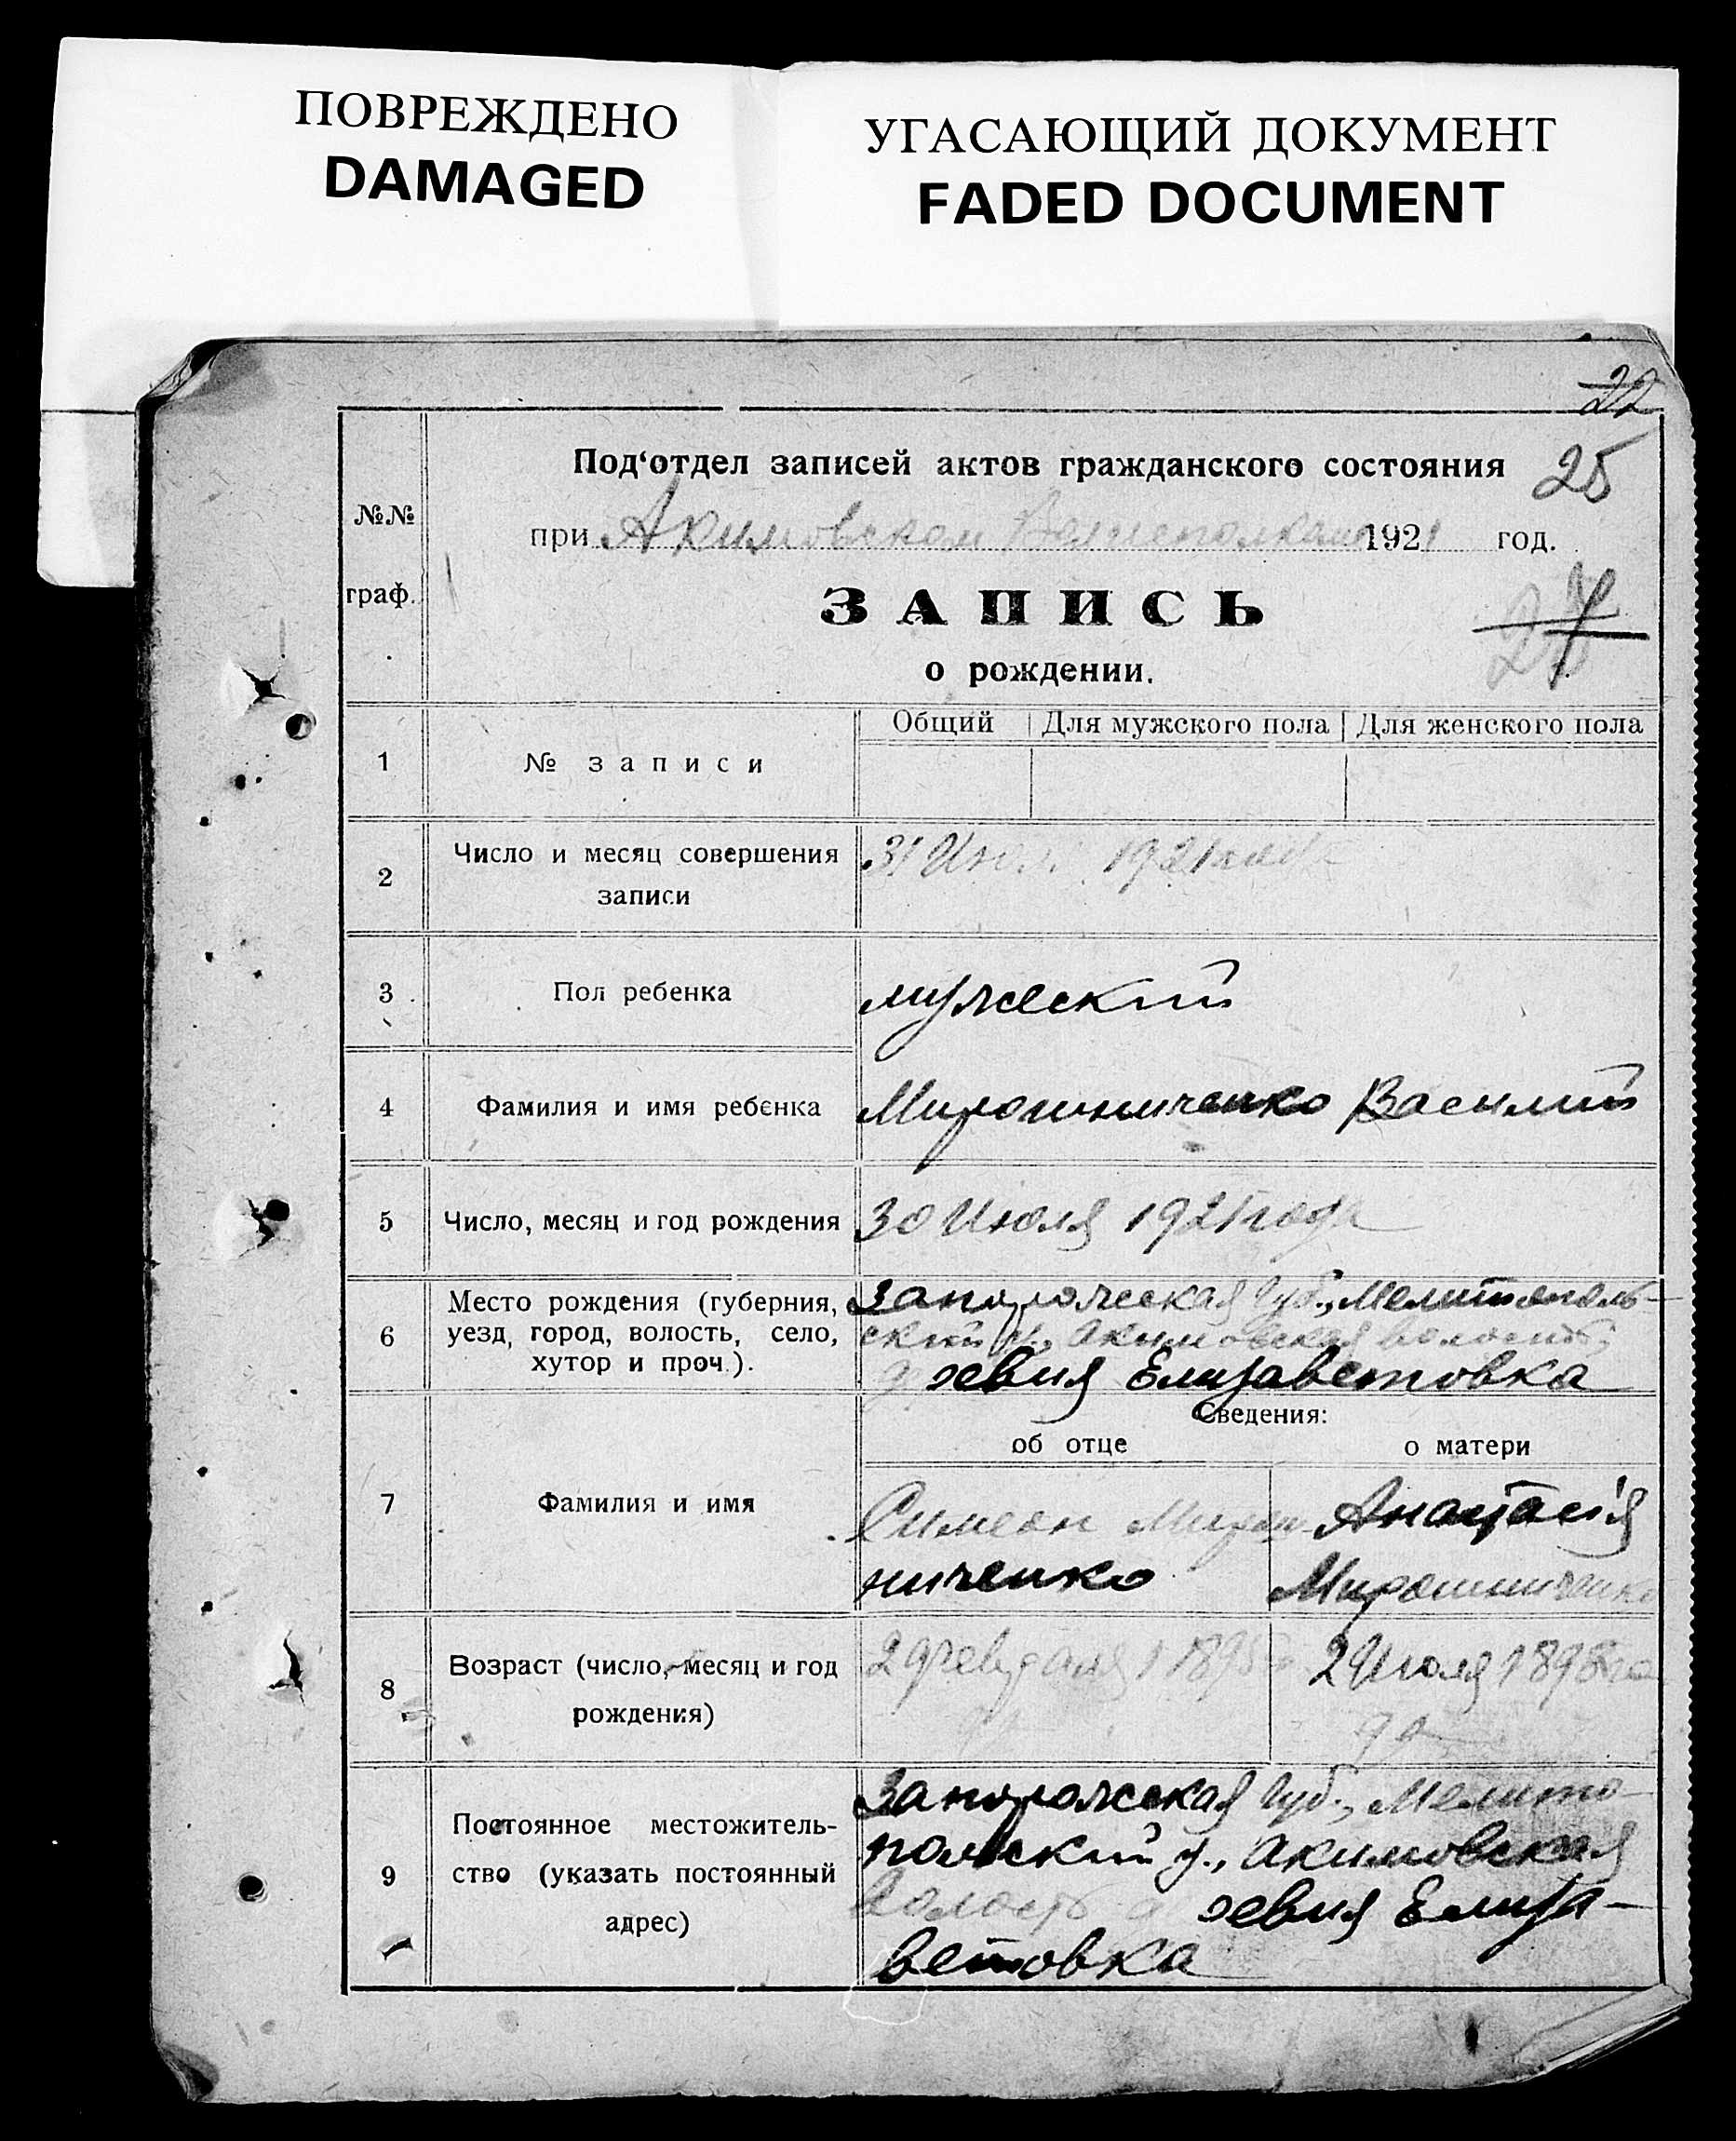 ПОВРЕЖДЕНО
DAMAGED
УГАСАЮЩИЙ ДОКУМЕНТ
FADED DOCUMENT
22
25
№№
граф.
Под‘отдел записей актов гражданского состояния
при Акимовском Волисполкоме 1921 год.
ЗАПИСЬ
о рождении.
Общий Для мужского пола Для женского пола
1 № записи
2 Число и месяц совершения
записи
31 Июля 1921 года
3 Пол ребенка
мужеский
4 Фамилия и имя ребенка
Мирошниченко Василий
5 Число, месяц и год рождения
30 Июля 1921 года
6 Место рождения (губерния,
уезд, город, волость, село,
хутор и проч.).
Запорожеская Губ., Мелитополь-
ский у., Акимовская волость,
Елизаветовка
Сведения:
об отце о матери
7 Фамилия и имя
Симеон Мирош-
ниченко
Анастасія
Мирошниченко
8 Возраст (число, месяц и год
рождения)
1895
2 Июля 1898 го
да
9 Постоянное местожитель-
ство (указать постоянный
адрес)
Запорожеская Губ., Мелито-
польский у., Акимовская
Волость Елиза-
ветовка